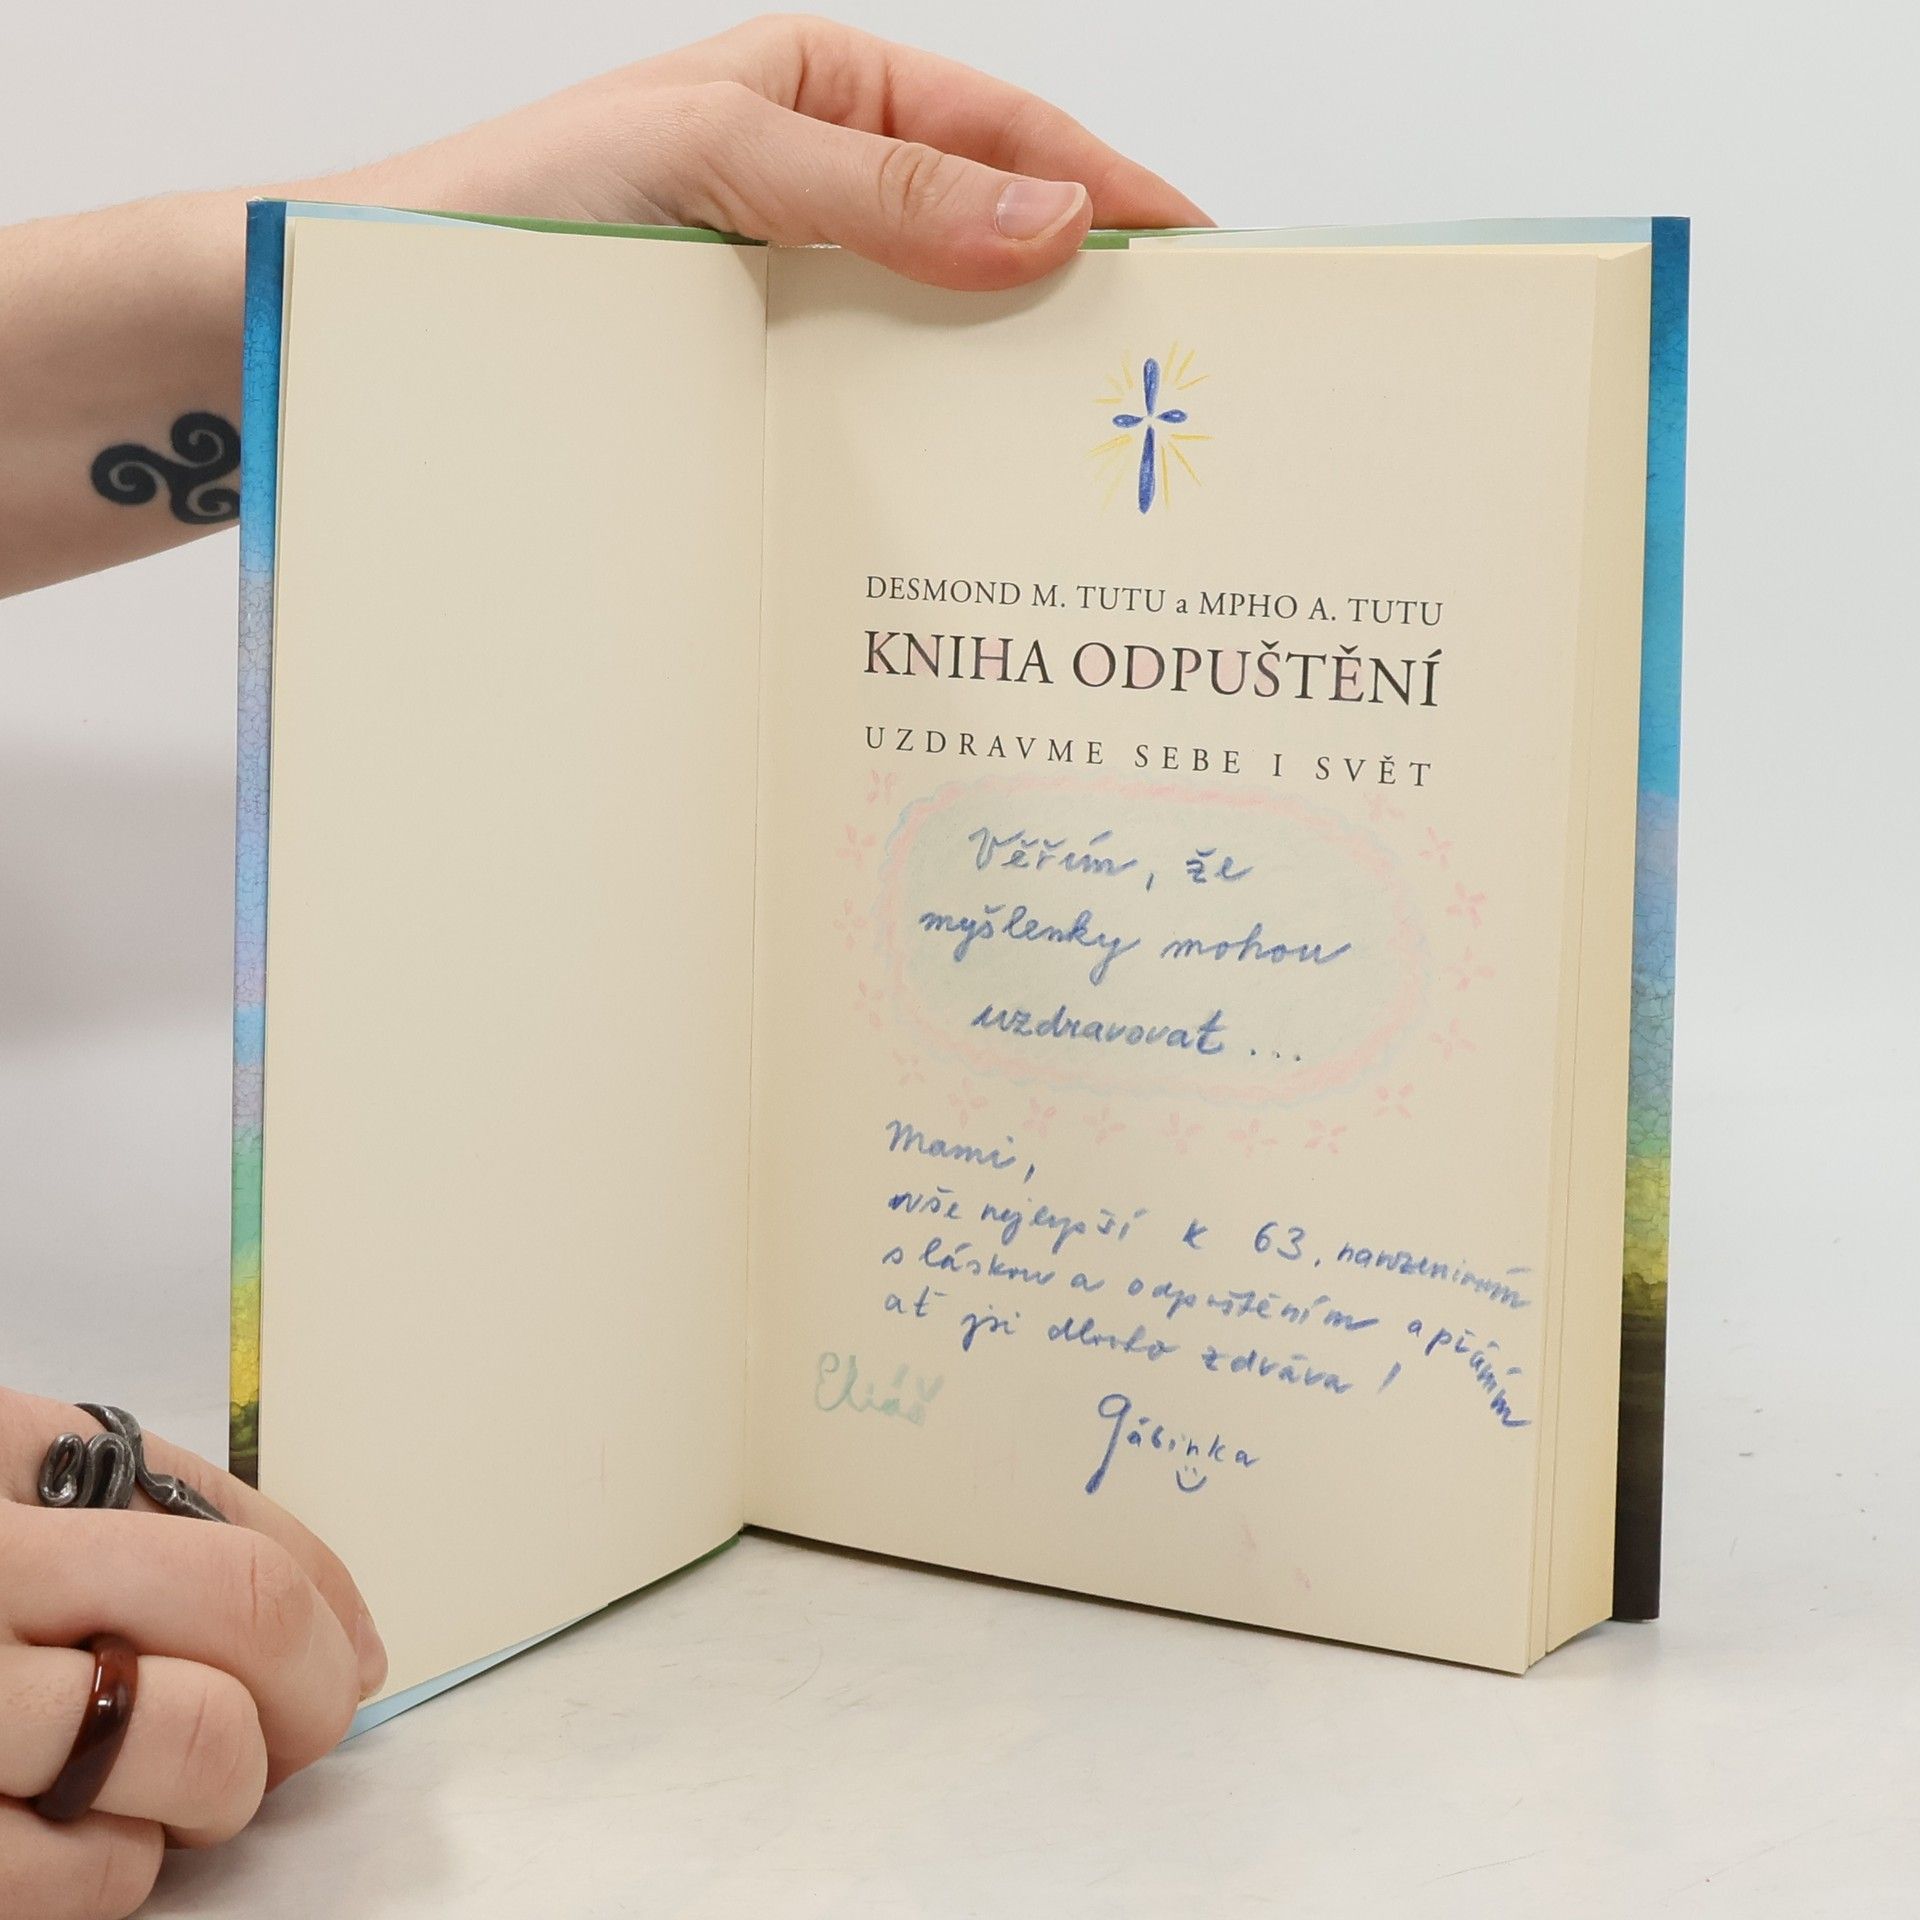 DESMOND M. TUTU a MPHO A. TUTU
KNIHA ODPUŠTĚNÍ
UZDRAVME SEBE I SVĚT
Věřím, že
myšlenky mohou
uzdravovat ...
Mami,
vše nejlepší k 63. narozeninám
s láskou a odpuštěním a přáním
ať jsi dlouho zdráva!
Eliáš
Gábinka